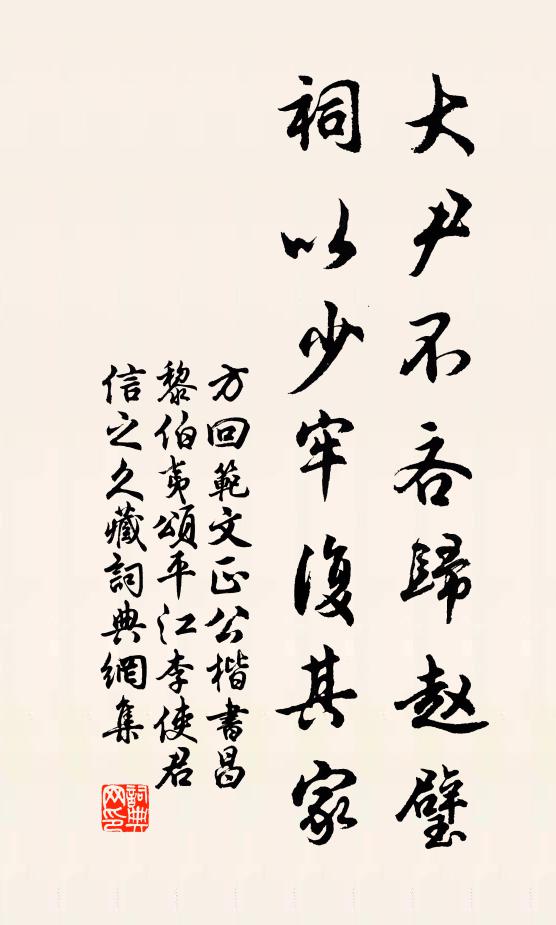 大尹不吝歸赵璧
祠以少牢復其家
方回範文正公楷書昌
黎伯夷頌平江李使君
信之久藏詞典網集
詞典网印